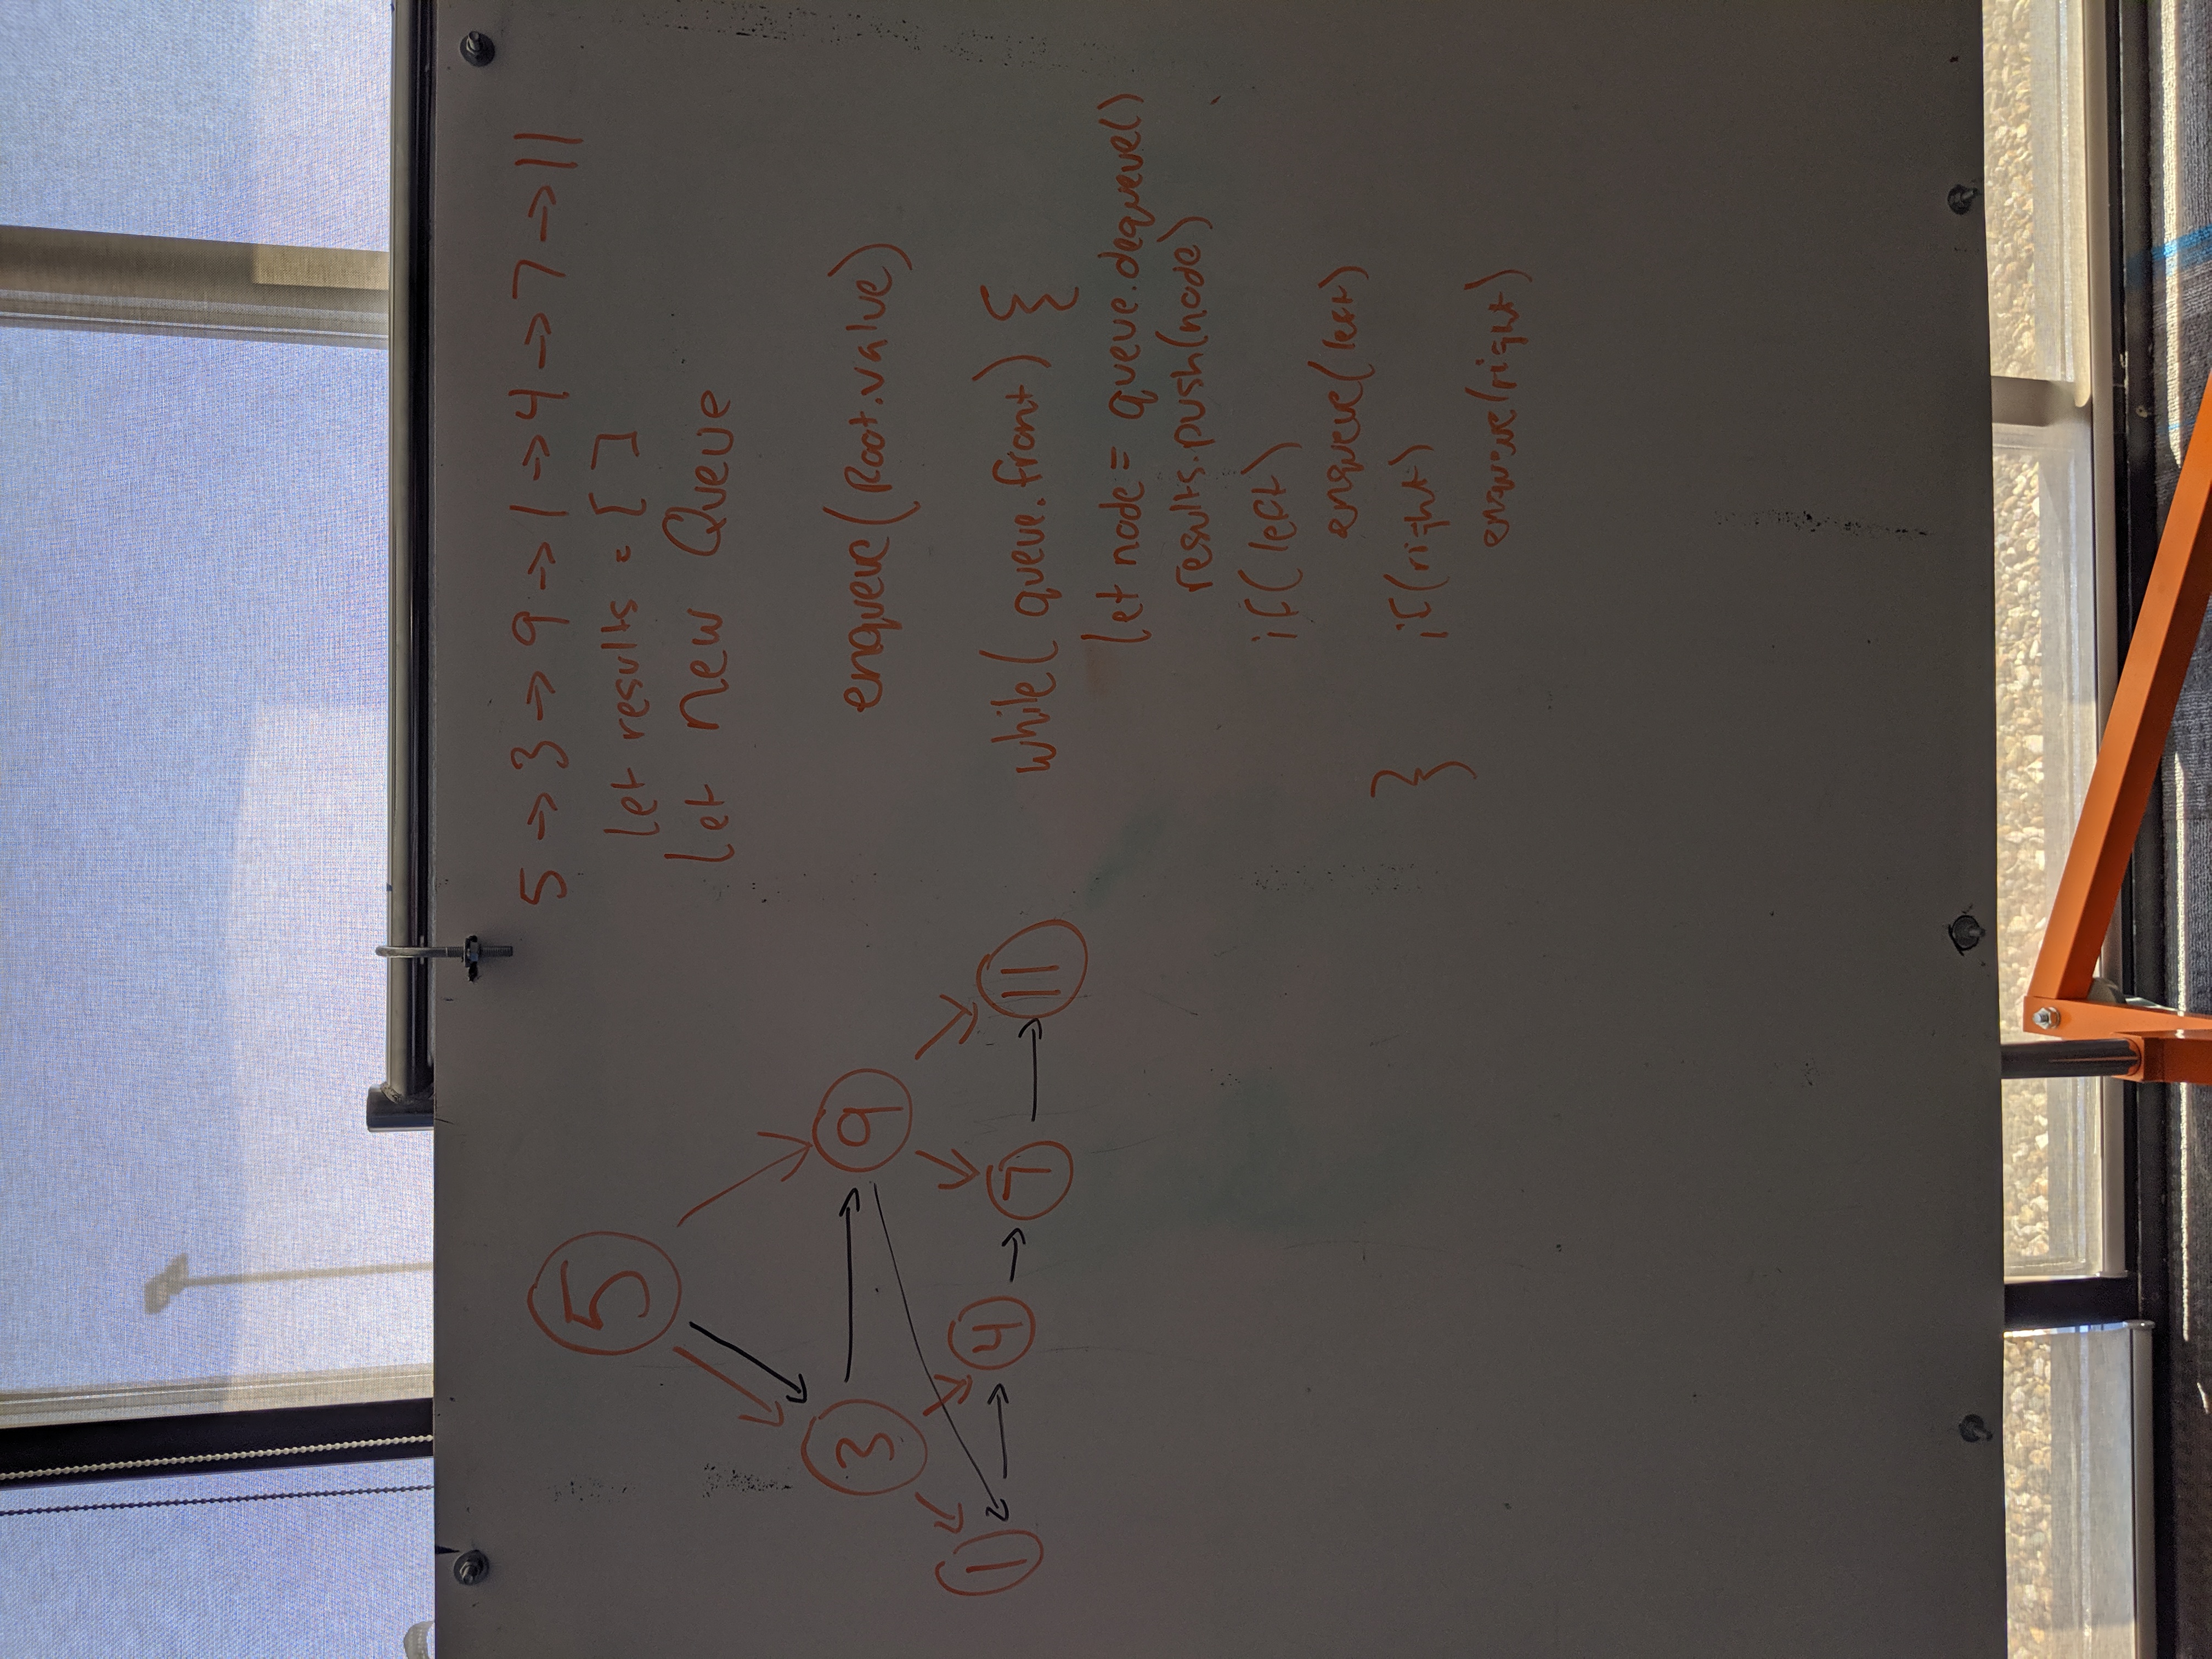 5
3 9
1 4 7 11
5 → 3 → 9 → 1 → 4 → 7 → 11
let results = [ ]
let new Queue
enqueue(Root.value)
while( queue.front) {
let node = queue.dequeue()
results.push(node)
if(left)
enqueue(left)
} if(right)
enqueue(right)